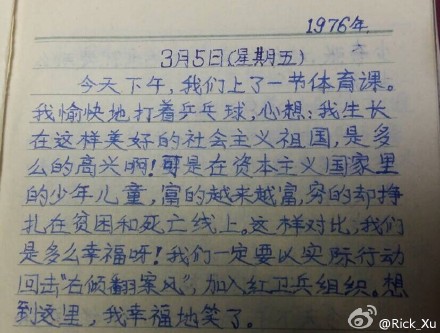 1976年.
3月5日(星期五)
今天下午,我们上了一节体育课。
我愉快地打着乒乓球,心想:我生长
在这样美好的社会主义祖国,是多
么的高兴啊!可是在资本主义国家里
的少年儿童,富的越来越富,穷的却挣
扎在贫困和死亡线上。这样对比,我们
是多么幸福呀!我们一定要以实际行动
回击“右倾翻案风”,加入红卫兵组织。想
到这里,我幸福地笑了。
@Rick_Xu